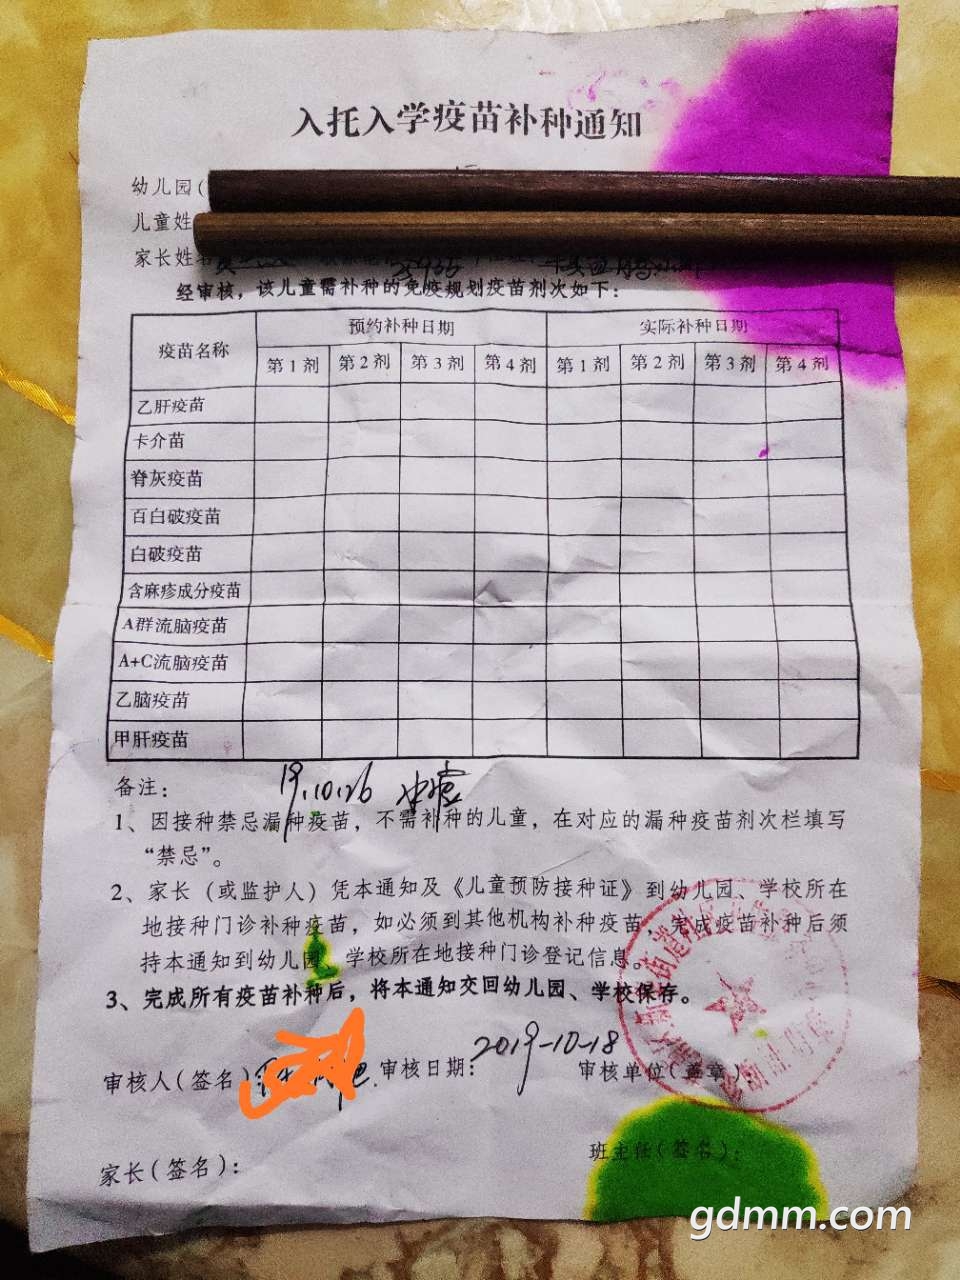 入托入学疫苗补种通知
幼儿园(
儿童姓
家长姓名
经审核，该儿童需补种的免疫规划疫苗剂次如下：
疫苗名称 预约补种日期 实际补种日期
第1剂 第2剂 第3剂 第4剂 第1剂 第2剂 第3剂 第4剂
乙肝疫苗
卡介苗
脊灰疫苗
百白破疫苗
白破疫苗
含麻疹成分疫苗
A群流脑疫苗
A+C流脑疫苗
乙脑疫苗
甲肝疫苗
备注： 19.10.26
1、因接种禁忌漏种疫苗，不需补种的儿童，在对应的漏种疫苗剂次栏填写
“禁忌”。
2、家长（或监护人）凭本通知及《儿童预防接种证》到幼儿园、学校所在
地接种门诊补种疫苗，如必须到其他机构补种疫苗，完成疫苗补种后须
持本通知到幼儿园、学校所在地接种门诊登记信息。
3、完成所有疫苗补种后，将本通知交回幼儿园、学校保存。
审核人(签名) 审核日期：2019-10-18 审核单位(盖章)
家长(签名)： 班主任(签名)：
gdmm.com